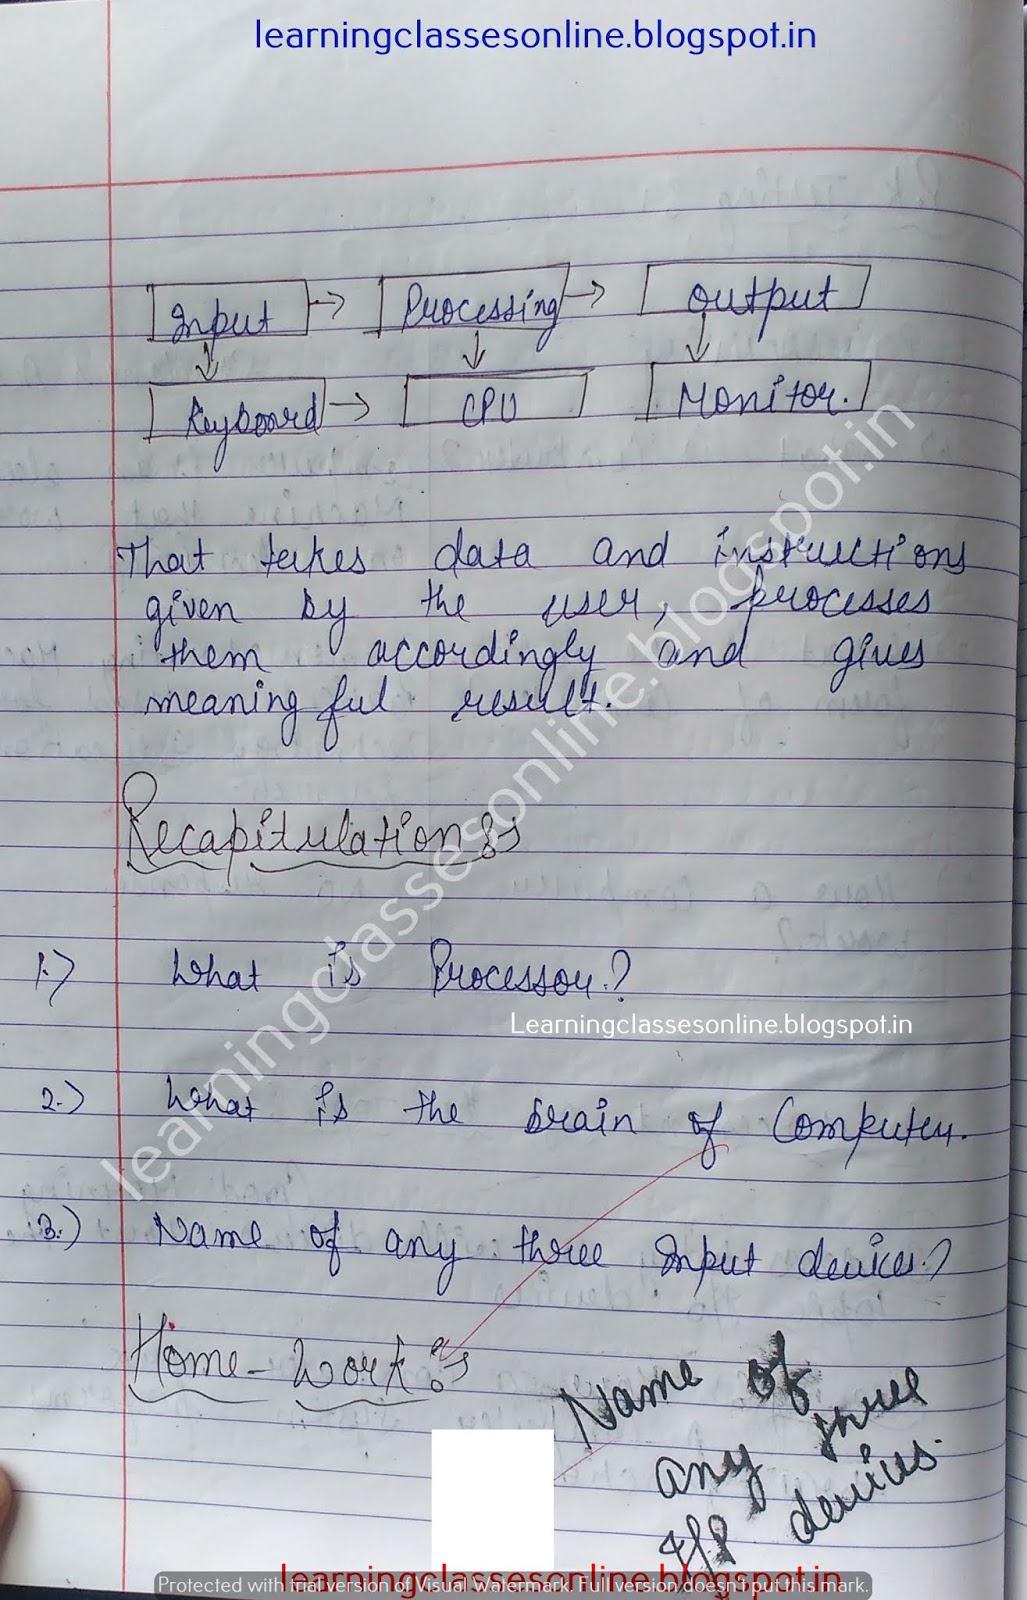 learningclassesonline.blogspot.in
Input → Processing → Output
Keyboard → CPU Monitor.
That takes data and instructions
given by the user, processes
them accordingly and gives
meaningful result.
Recapitulation :-
1.) What is Processor.?
Learningclassesonline.blogspot.in
2.) What is the brain of Computer.
3.) Name of any three Input devices.?
Home-Work :-
Name of
any three
I/P devices.
learningclassesonline.blogspot.in
learningclassesonline.blogspot.in
Protected with trial version of Visual Watermark. Full version doesn't put this mark.